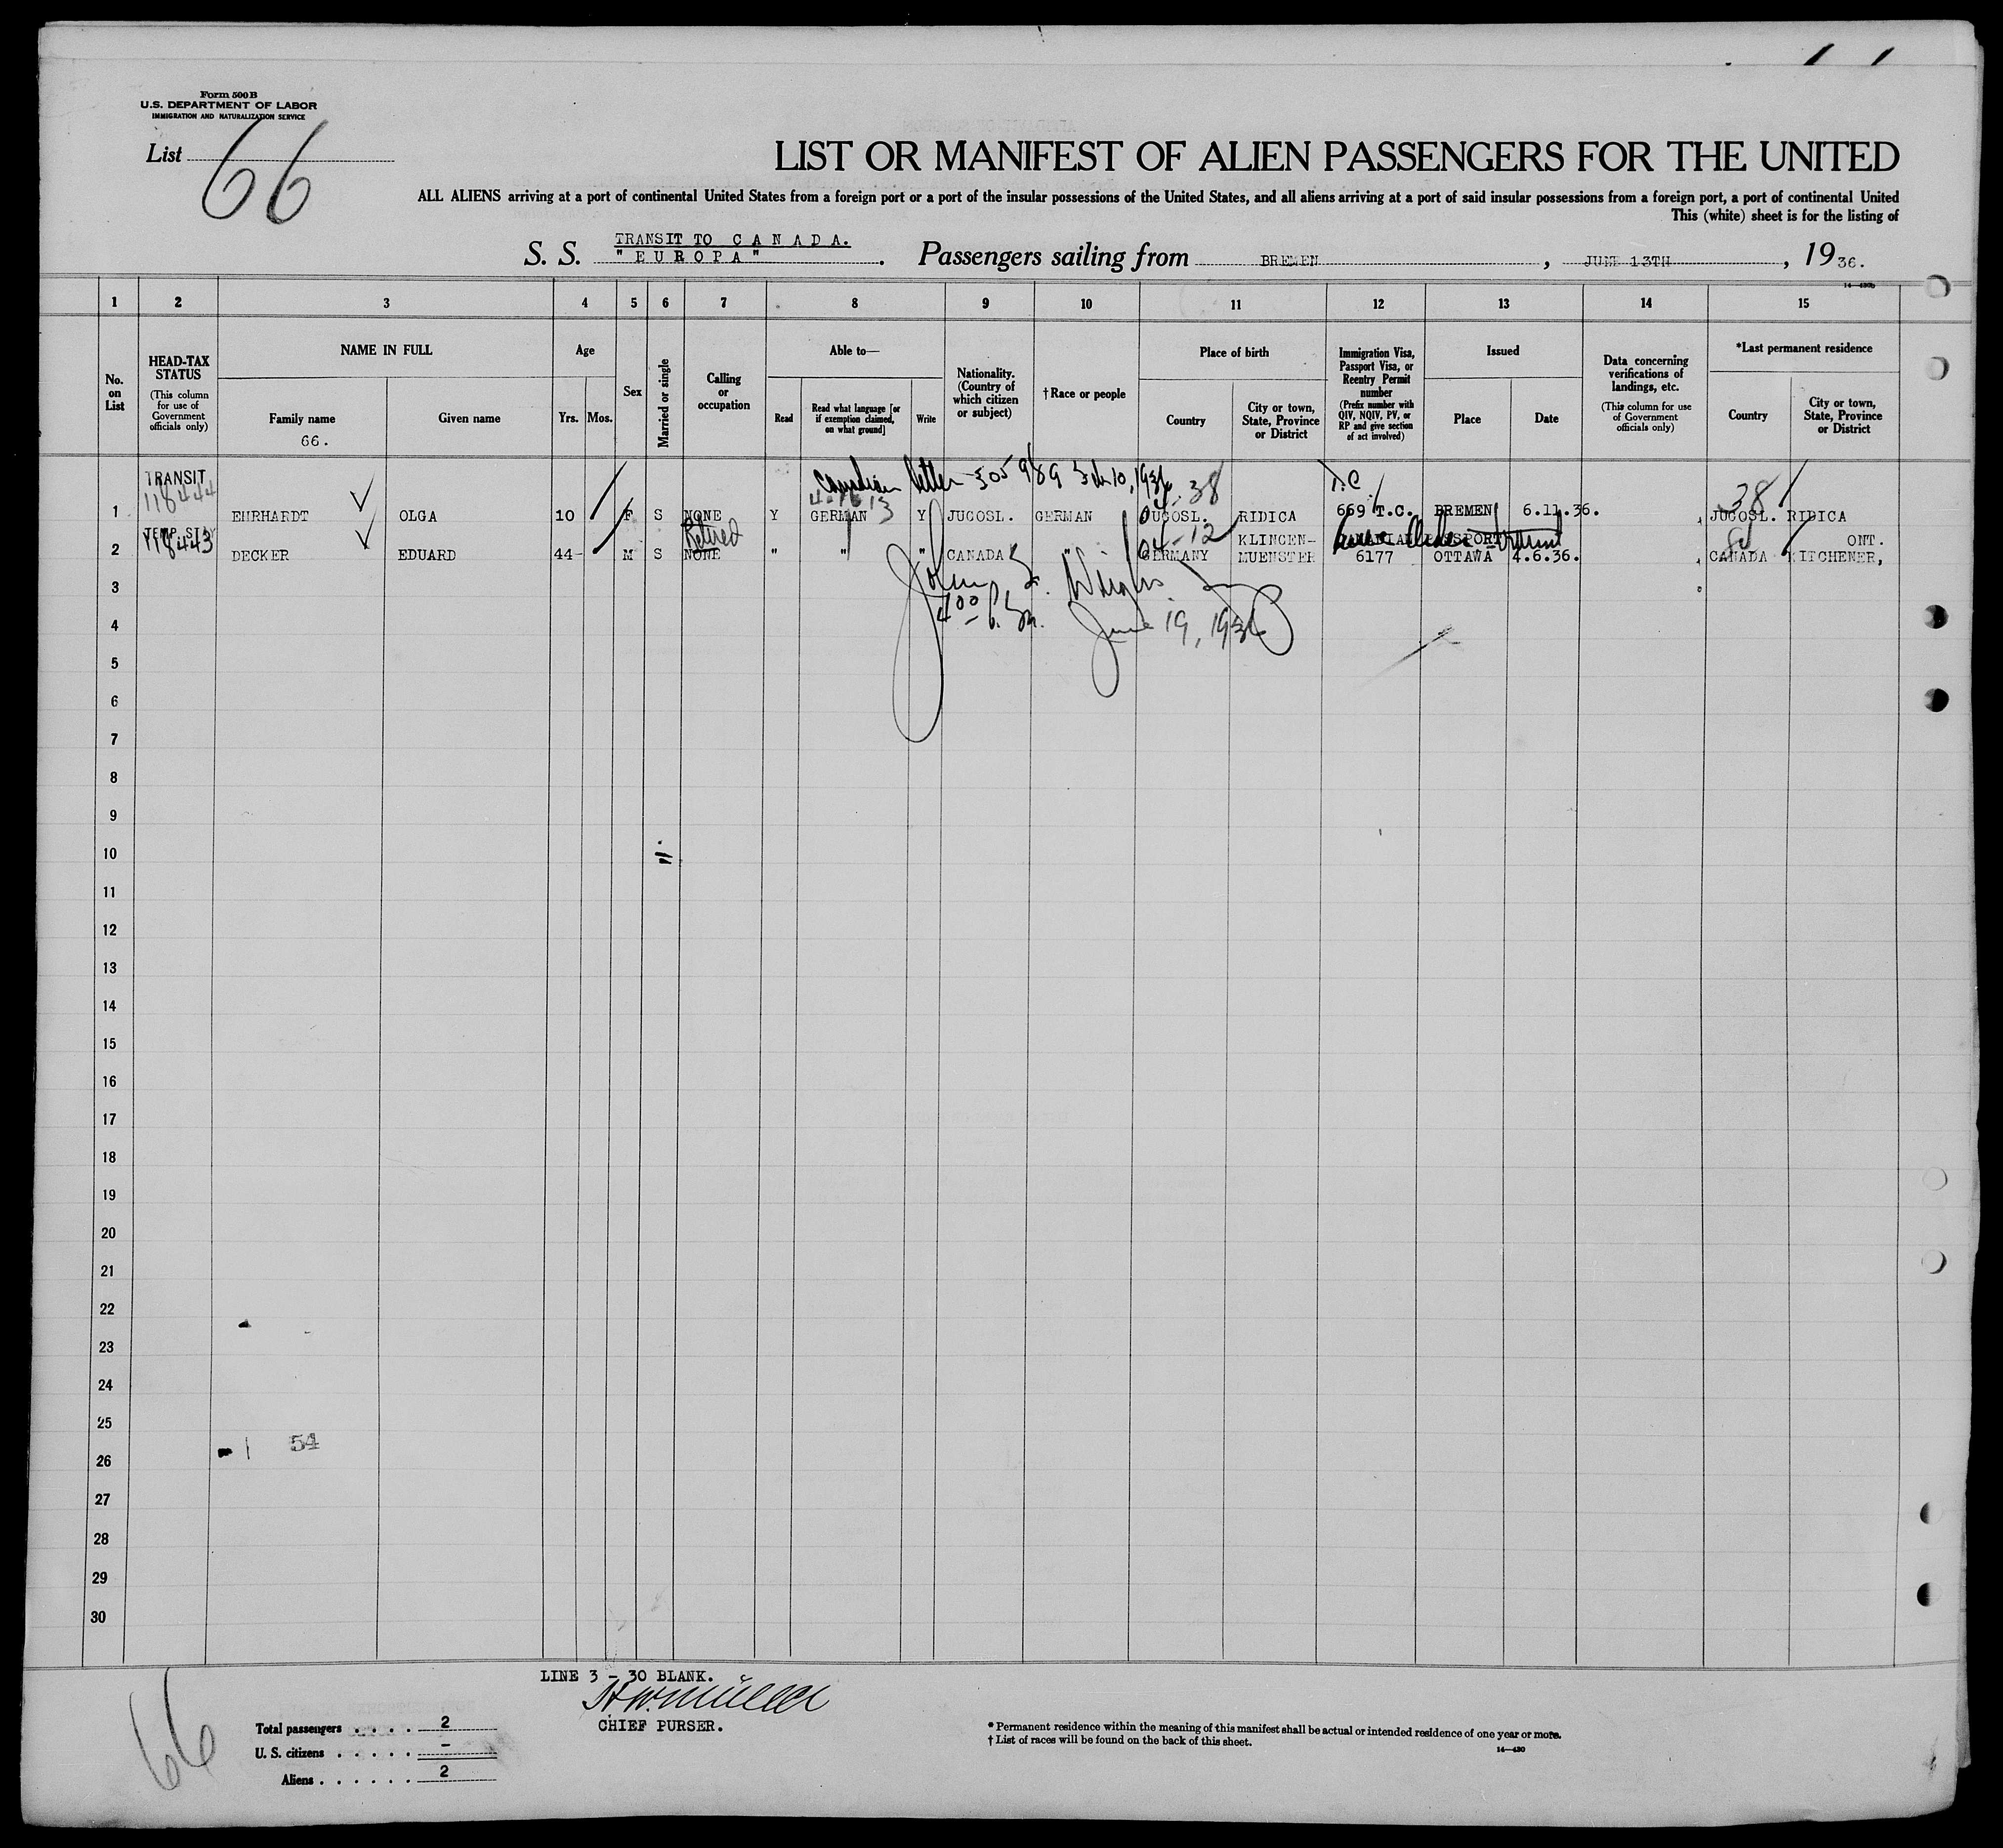 Form 500 B
U.S. DEPARTMENT OF LABOR
IMMIGRATION AND NATURALIZATION SERVICE
List 66
LIST OR MANIFEST OF ALIEN PASSENGERS FOR THE UNITED
ALL ALIENS arriving at a port of continental United States from a foreign port or a port of the insular possessions of the United States, and all aliens arriving at a port of said insular possessions from a foreign port, a port of continental United
This (white) sheet is for the listing of
TRANSIT TO CANADA.
S. S. "EUROPA". Passengers sailing from BREMEN, JUNE 13TH, 1936.
1 2 3 4 5 6 7 8 9 10 11 12 13 14 15
No. on List
HEAD-TAX STATUS
(This column for use of Government officials only)
NAME IN FULL
Family name
66.
Given name
Age
Yrs. Mos.
Sex
Married or single
Calling or occupation
Able to—
Read
Read what language [or if exemption claimed, on what ground]
Write
Nationality. (Country of which citizen or subject)
†Race or people
Place of birth
Country
City or town, State, Province or District
Immigration Visa, Passport Visa, or Reentry Permit number
(Prefix number with QIV, NQIV, PV, or RP and give section of act involved)
Issued
Place
Date
Data concerning verifications of landings, etc.
(This column for use of Government officials only)
*Last permanent residence
Country
City or town, State, Province or District
Canadian letter 305989 10, 1936
TRANSIT 118444
1 EHRHARDT OLGA 10 F S NONE Y GERMAN Y JUGOSL. GERMAN JUGOSL. RIDICA 669 T.C. BREMEN 6.11.36. JUGOSL. RIDICA
118443 Retired KLINGEN- CANADIAN PASSPORT ONT.
2 DECKER EDUARD 44 M S NONE " " " CANADA " GERMANY MUENSTER 6177 OTTAWA 4.6.36. CANADA KITCHENER,
3
4 June 19, 1936
5
6
7
8
9
10
11
12
13
14
15
16
17
18
19
20
21
22
23
24
25
54
26
27
28
29
30
LINE 3 - 30 BLANK.
CHIEF PURSER.
66
Total passengers . . . . 2
U. S. citizens . . . . . -
Aliens . . . . . . 2
* Permanent residence within the meaning of this manifest shall be actual or intended residence of one year or more.
† List of races will be found on the back of this sheet.
14—430